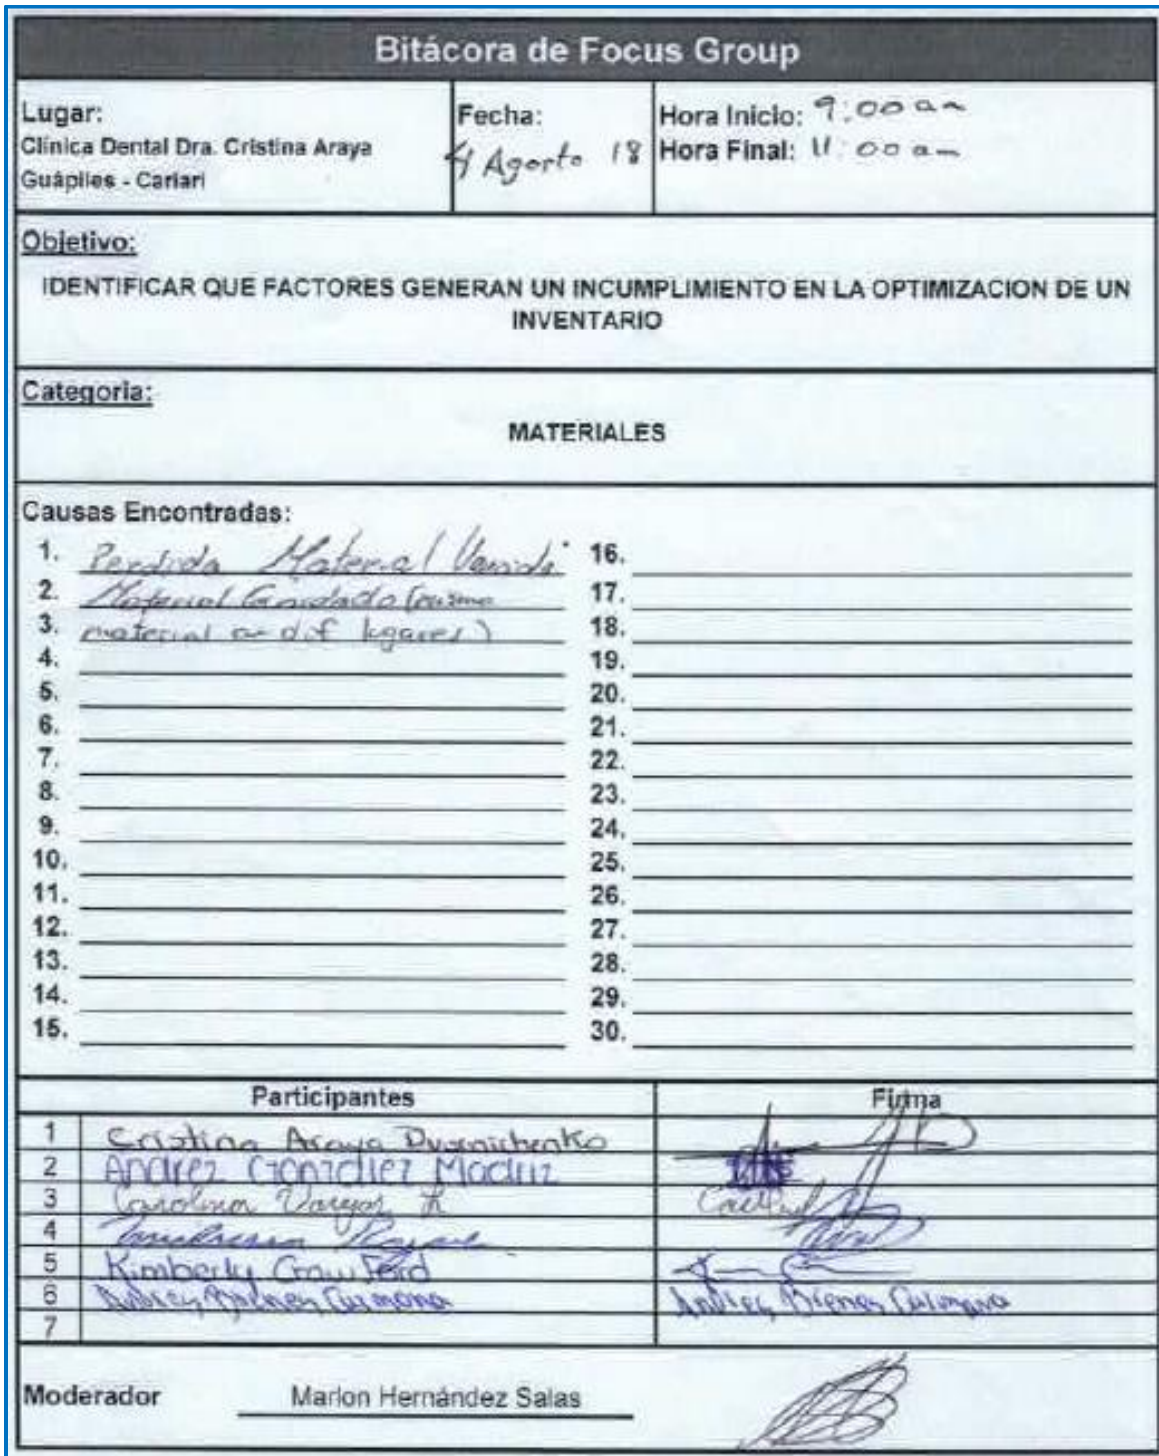 Bitácora de Focus Group
Lugar:
Clínica Dental Dra. Cristina Araya
Guápiles - Cariari
Fecha:
4 Agosto 18
Hora Inicio: 9:00 am
Hora Final: 11:00 am
Objetivo:
IDENTIFICAR QUE FACTORES GENERAN UN INCUMPLIMIENTO EN LA OPTIMIZACION DE UN
INVENTARIO
Categoria:
MATERIALES
Causas Encontradas:
1. Perdida Material
2. Material Guardado (mismo
3. material en dif lugares)
4.
5.
6.
7.
8.
9.
10.
11.
12.
13.
14.
15.
16.
17.
18.
19.
20.
21.
22.
23.
24.
25.
26.
27.
28.
29.
30.
Participantes Firma
1 Cristina Araya
2 Andrez González Madriz
3 Carolina Vargas
4
5 Kimberly Crawford
6
7
Moderador Marlon Hernández Salas